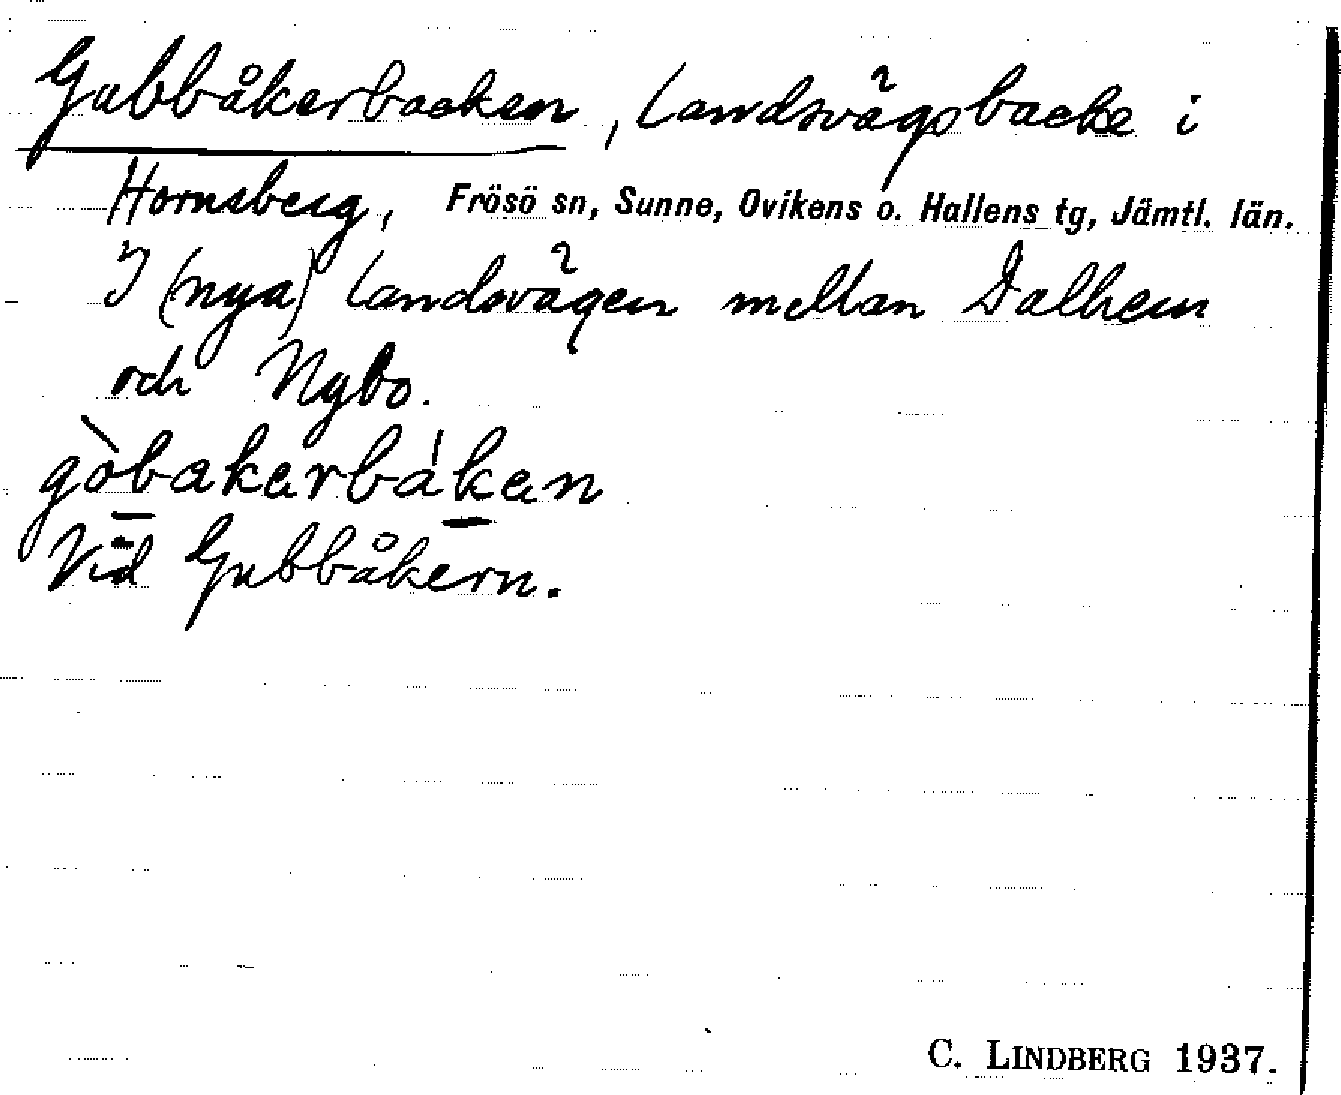 Gubbåkerbacken, landsvägsbacke i
Hornsberg, Frösö sn, Sunne, Ovikens o. Hallens tg, Jämtl. län.
I (nya) landsvägen mellan Dalhem
och Nybo.
gòbakerbákan
Vid Gubbåkern.
C. LINDBERG 1937.